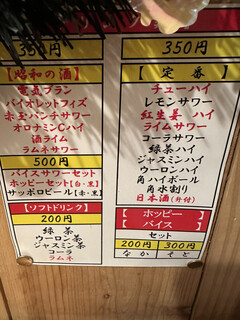 350円
【昭和の酒】
電気ブラン
バイオレットフィズ
赤玉パンチサワー
オロナミンCハイ
酒ライム
ラムネサワー
500円
バイスサワーセット
ホッピーセット(白・黒)
サッポロビール(赤・黒)
【ソフトドリンク】
200円
緑茶
ウーロン茶
ジャスミン茶
コーラ
ラムネ
350円
【定番】
チューハイ
レモンサワー
紅生姜ハイ
ライムサワー
コーラサワー
緑茶ハイ
ジャスミンハイ
ウーロンハイ
角ハイボール
角水割り
日本酒(升付)
ホッピー
バイス
セット
200円 300円
なか そと